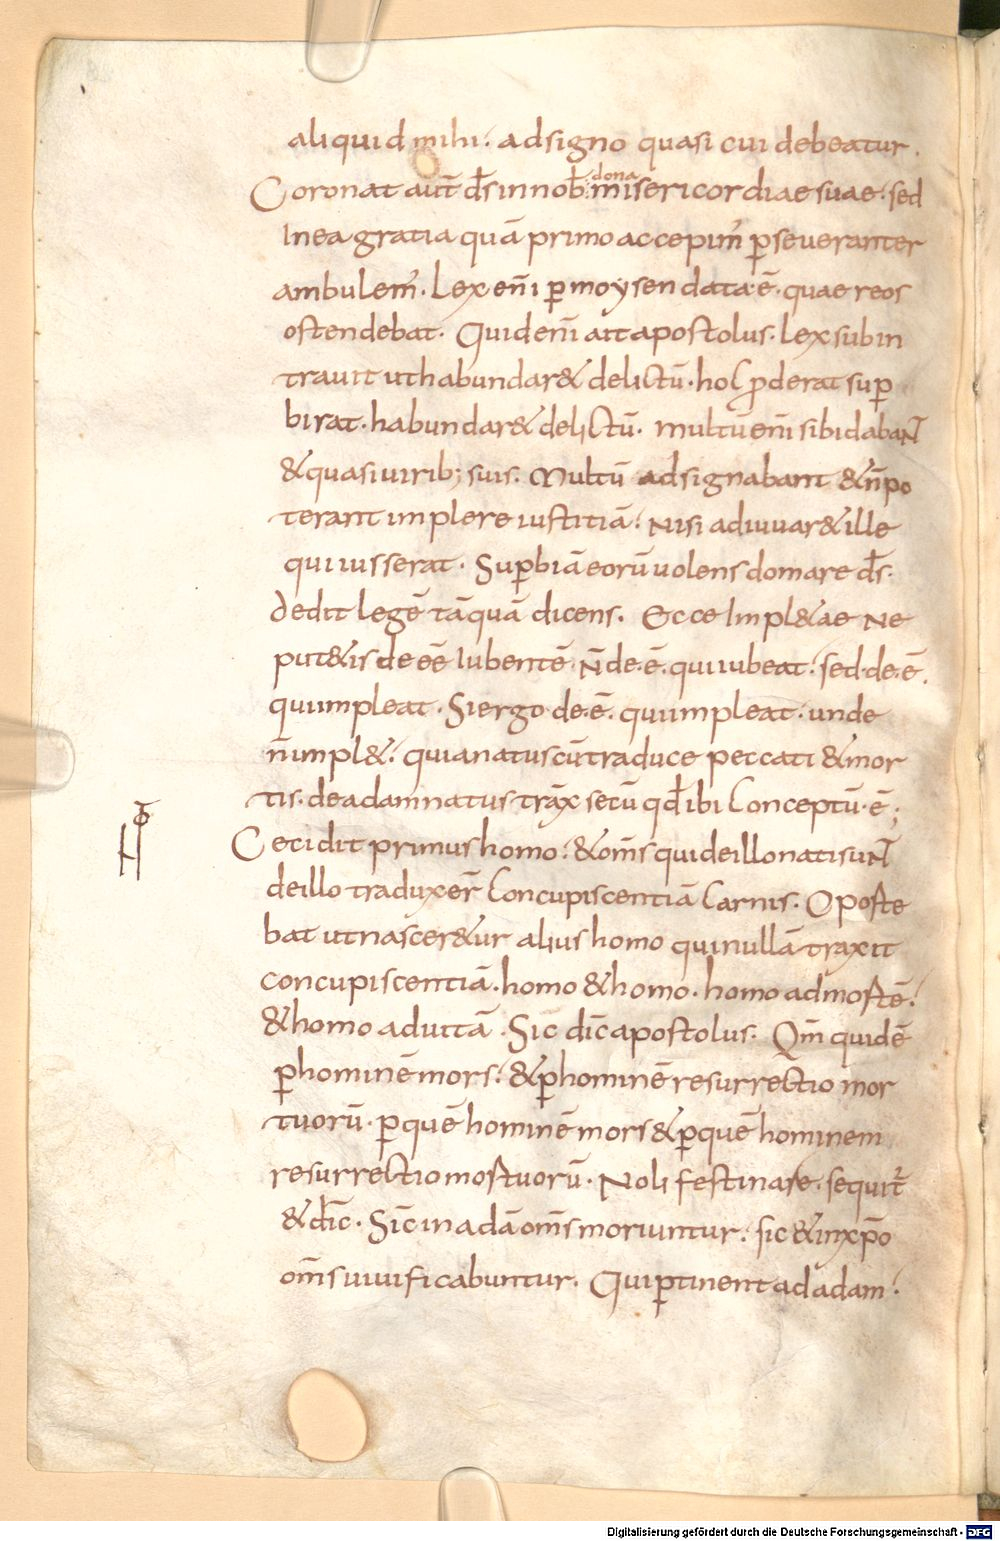 aliquid mihi· adsigno quasi cui debeatur.
Coronat aut̄ d̄s in nob̄· dona misericordiae suae· sed
In ea gratia quā primo accepim̄ ꝑseveranter
ambulem̄· Lex en̄i ꝑ moysen data·ē· quae reos
ostendebat· Quid en̄i ait apostolus· Lex subin
travit ut habundar& delictū· hoc ꝓderat suꝑ
birat· habundar& delictū· multū en̄i sibi dabaNT
& quasi virib; suis· Multū adsignabant & n̄ po
terant implere iustitiā· Nisi adiuvar& ille
qui iusserat· Suꝑbiā eorū volens domare d̄s·
dedit legē tāquā dicens· Ecce Impl&ae Ne
put&is deeē Iubentē· N̄ de·ē· qui iubeat· sed·de·ē·
qui impleat· Si ergo de·ē· qui impleat· unde
n̄ impl&· quia natus cū traduce peccati & mor
tis· de adam natus trax̄ secū qđ ibi conceptū·ē·;
Cecidit primus homo· & om̄s qui de illo nati suNT
de illo traduxer̄ concupiscentiā carnis· Oporte
bat ut nascer&ur alius homo qui nullā traxit
concupiscentiā· homo & homo· homo ad mortē·
& homo ad vitā· Sic dic̄ apostolus· Qm̄ quidē
ꝑ hominē mors· & ꝑ hominē resurrectio mor
tuorū· ꝑ quē hominē mors & ꝑ quē hominem
resurrectio mortuorū· Noli festinare· sequit̄
& dic̄· Sic̄ in adā om̄s moriuntur· sic & in xp̄o
om̄s vivificabuntur· Qui ꝑtinent ad adam·
Digitalisierung gefördert durch die Deutsche Forschungsgemeinschaft - DFG